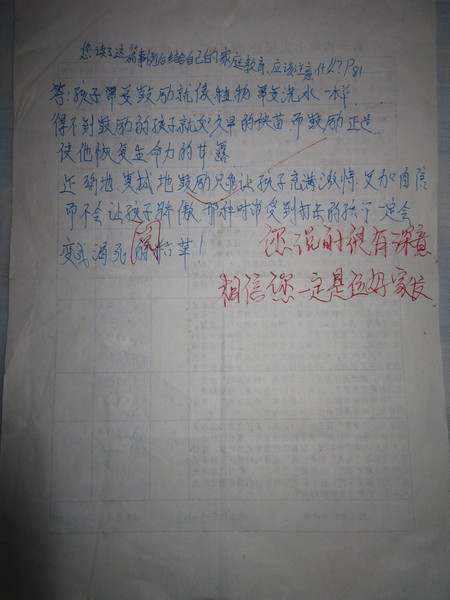 您读了这篇事例后结给自己的家庭教育,应该注意什么?P81
答:孩子需要鼓励就像植物需要浇水一样
得不到鼓励的孩子就如久旱的秧苗.而鼓励正是
使他恢复生命力的甘露
正确地、真诚地鼓励只能让孩子充满激情.更加自信
而不会让孩子骄傲.那种时常受到打击的孩子一定会
变成渴死的枯草!
阅
您说时很有深意
相信您一定是位好家长